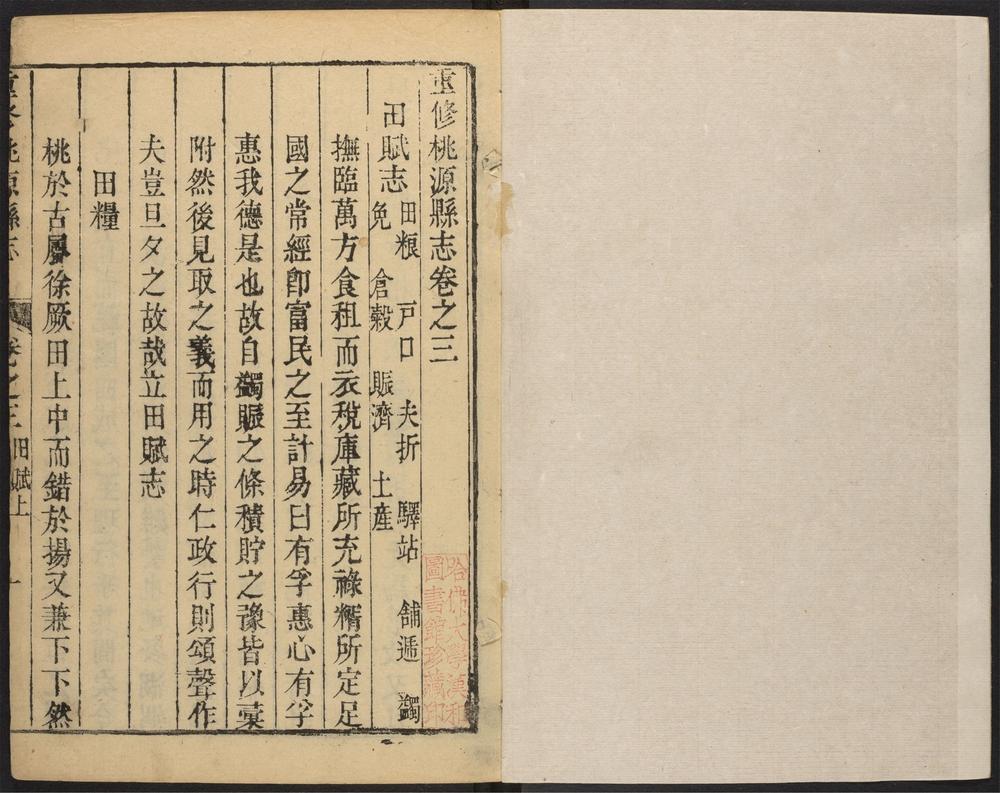 重修桃源縣志卷之三
田賦志 田粮 戸口 夫折 驛站 舖遞 蠲
免 倉穀 賑濟 土産
撫臨萬方食租而衣稅庫藏所充祿糈所定足
國之常經卽富民之至計易曰有孚惠心有孚
惠我德是也故自蠲賑之條積貯之豫皆以彙
附然後見取之義而用之時仁政行則頌聲作
夫豈旦夕之故哉立田賦志
田糧
桃於古屬徐厥田上中而錯於揚又兼下下然
重修桃源縣志 卷之三 田賦上 一
哈佛大學漢和
圖書館珍藏印